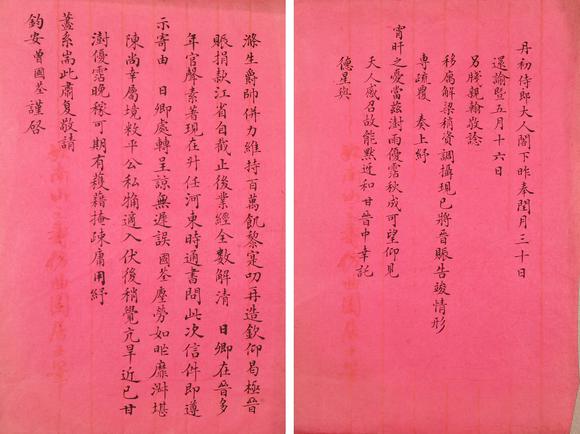 丹初侍郎大人閣下昨奉閏月三十日
還諭暨五月十六日
另牋親翰敬諗
移廨解梁稍資調攝現已將晉賑告竣情形
專疏覆奏上紓
宵旰之憂當茲澍雨優霑秋成可望仰見
天人感召故能點近和甘晉中幸託
德星與
滌生爵帥併力維持百萬飢黎寔叨再造欽仰曷極晉
賑捐款江省自截止後業經全數解清日卿在晉多
年官聲素著現在升任河東時通書問此次信件即遵
示寄由日卿處轉呈諒無遲誤國荃塵勞如昨靡淛堪
陳尚幸屬境敉平公私牑適入伏後稍覺亢旱近已甘
澍優霑晚稼可期有穫藉掩疎庸用紓
藎系耑此肅复敬請
鈞安曾國荃謹啓